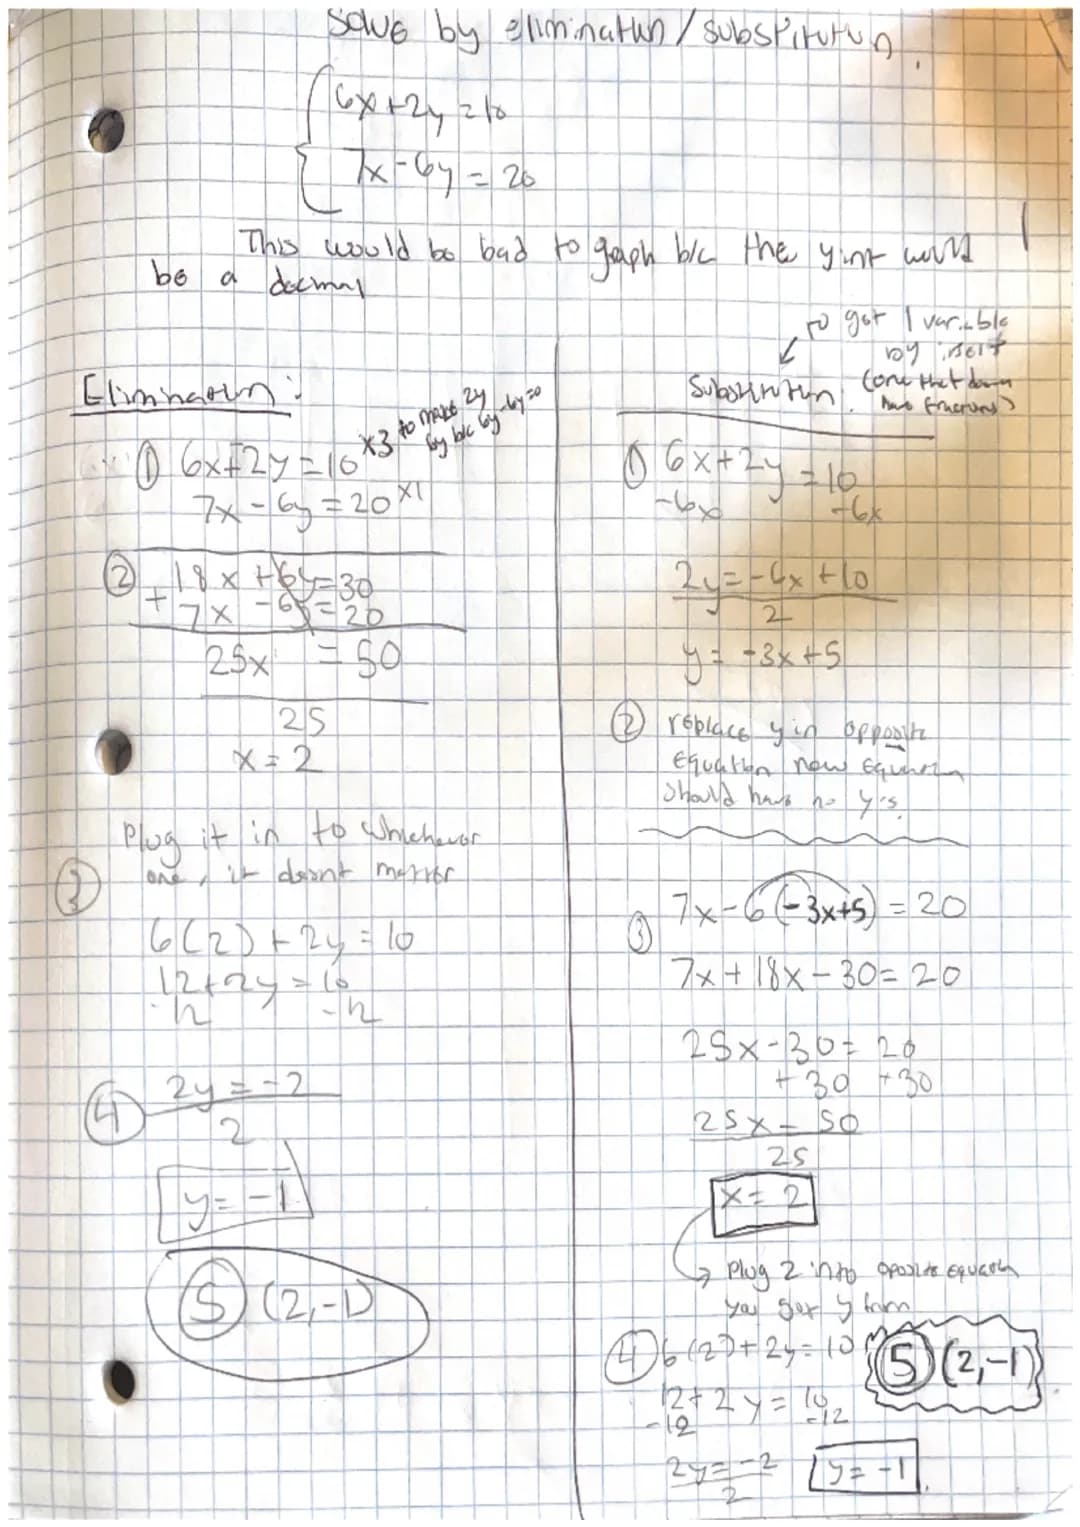 Solve by elimination / substitution
6x+2y=10
7x-6y=20
This would be bad to graph b/c the yint would
be a decimal
Elimination:
① 6x+2y=10 x3 to make 2y
6y b/c 6y-6y=0
7x-6y=20 x1
② 18x+6y=30
+ 7x-6y=20
25x =50
25
x=2
③ Plug it in to whichever
one, it doesnt matter
6(2)+2y=10
12+2y=10
-12 -12
④ 2y=-2
2
y=-1
Ⓢ (2,-1)
to get 1 variable
by itself
(one that doesn
have fractions)
Substitution:
① 6x+2y=10
-6x -6x
2y=-6x+10
2
y=-3x+5
② replace y in opposite
equation new equation
should have no y's.
③ 7x-6(-3x+5)=20
7x+18x-30=20
25x-30=20
+30 +30
25x=50
25
x=2
Plug 2 into opposite equation
you got y from
④ 6(2)+2y=10
12+2y=10
-12 -12
2y=-2
2
y=-1
Ⓢ (2,-1)